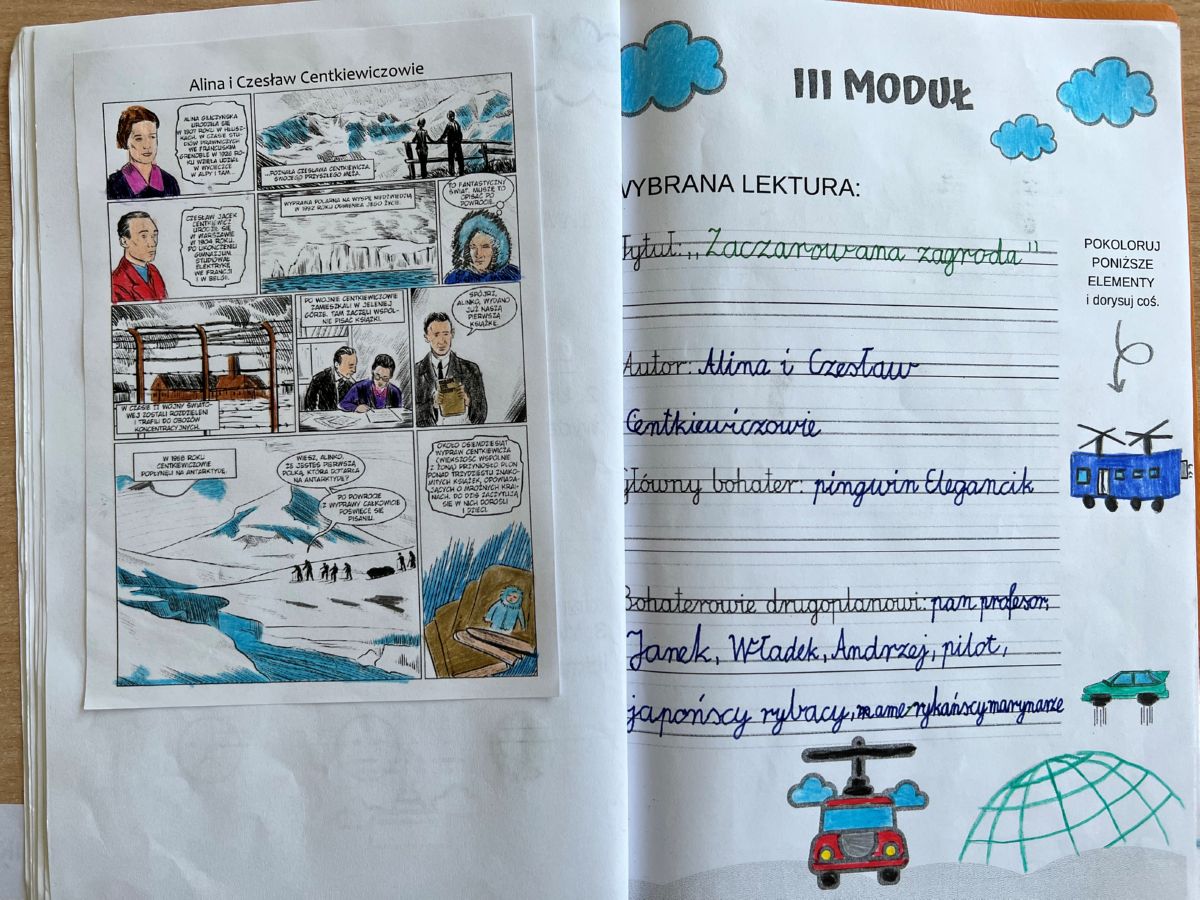 Alina i Czesław Centkiewiczowie
ALINA GILICZYŃSKA
URODZIŁA SIĘ
W 1907 ROKU W HŁUSZ-
KACH. W CZASIE STU-
DIÓW PRAWNICZYCH
WE FRANCUSKIM
GRENOBLE W 1928 RO-
KU WZIĘŁA UDZIAŁ
W WYCIECZCE
W ALPY I TAM...
...POZNAŁA CZESŁAWA CENTKIEWICZA,
SWOJEGO PRZYSZŁEGO MĘŻA.
CZESŁAW JACEK
CENTKIEWICZ
URODZIŁ SIĘ
W WARSZAWIE
W 1904 ROKU.
PO UKOŃCZENIU
GIMNAZJUM,
STUDIOWAŁ
ELEKTRYKĘ
WE FRANCJI
I W BELGII.
WYPRAWA POLARNA NA WYSPĘ NIEDŹWIEDZIĄ
W 1932 ROKU ODMIENIŁA JEGO ŻYCIE.
TO FANTASTYCZNY
ŚWIAT. MUSZĘ TO
OPISAĆ PO
POWROCIE.
W CZASIE II WOJNY ŚWIATO-
WEJ ZOSTALI ROZDZIELENI
I TRAFILI DO OBOZÓW
KONCENTRACYJNYCH.
PO WOJNIE CENTKIEWICZOWIE
ZAMIESZKALI W JELENIEJ
GÓRZE. TAM ZACZĘLI WSPÓL-
NIE PISAĆ KSIĄŻKI.
SPÓJRZ,
ALINKO, WYDANO
JUŻ NASZĄ
PIERWSZĄ
KSIĄŻKĘ.
W 1958 ROKU
CENTKIEWICZOWIE
POPŁYNĘLI NA ANTARKTYDĘ.
WIESZ, ALINKO,
ŻE JESTEŚ PIERWSZĄ
POLKĄ, KTÓRA DOTARŁA
NA ANTARKTYDĘ?
PO POWROCIE
Z WYPRAWY CAŁKOWICIE
POŚWIĘCĘ SIĘ
PISANIU.
OKOŁO OSIEMDZIESIĄT
WYPRAW CENTKIEWICZA
(WIĘKSZOŚĆ WSPÓLNIE
Z ŻONĄ) PRZYNIOSŁO PLON
PONAD TRZYDZIESTU ZNAKO-
MITYCH KSIĄŻEK, OPOWIADA-
JĄCYCH O MROŹNYCH KRAI-
NACH. DO DZIŚ ZACZYTUJĄ
SIĘ W NICH DOROŚLI
I DZIECI.
III MODUŁ
WYBRANA LEKTURA:
Tytuł: „Zaczarowana zagroda"
POKOLORUJ
PONIŻSZE
ELEMENTY
i dorysuj coś.
Autor: Alina i Czesław
Centkiewiczowie
Główny bohater: pingwin Elegancik
Bohaterowie drugoplanowi: pan profesor,
Janek, Władek, Andrzej, pilot,
japońscy rybacy, amerykańscy marynarze